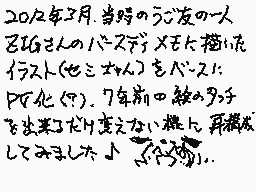 2012年3月.当時のうごメモの一人
ZIGさんのバースディメモに描いた
イラスト(セミちゃん)をベースに
PC化(?).7年前の絵のタッチ
を出来るだけ変えない様に再構成
してみました♪